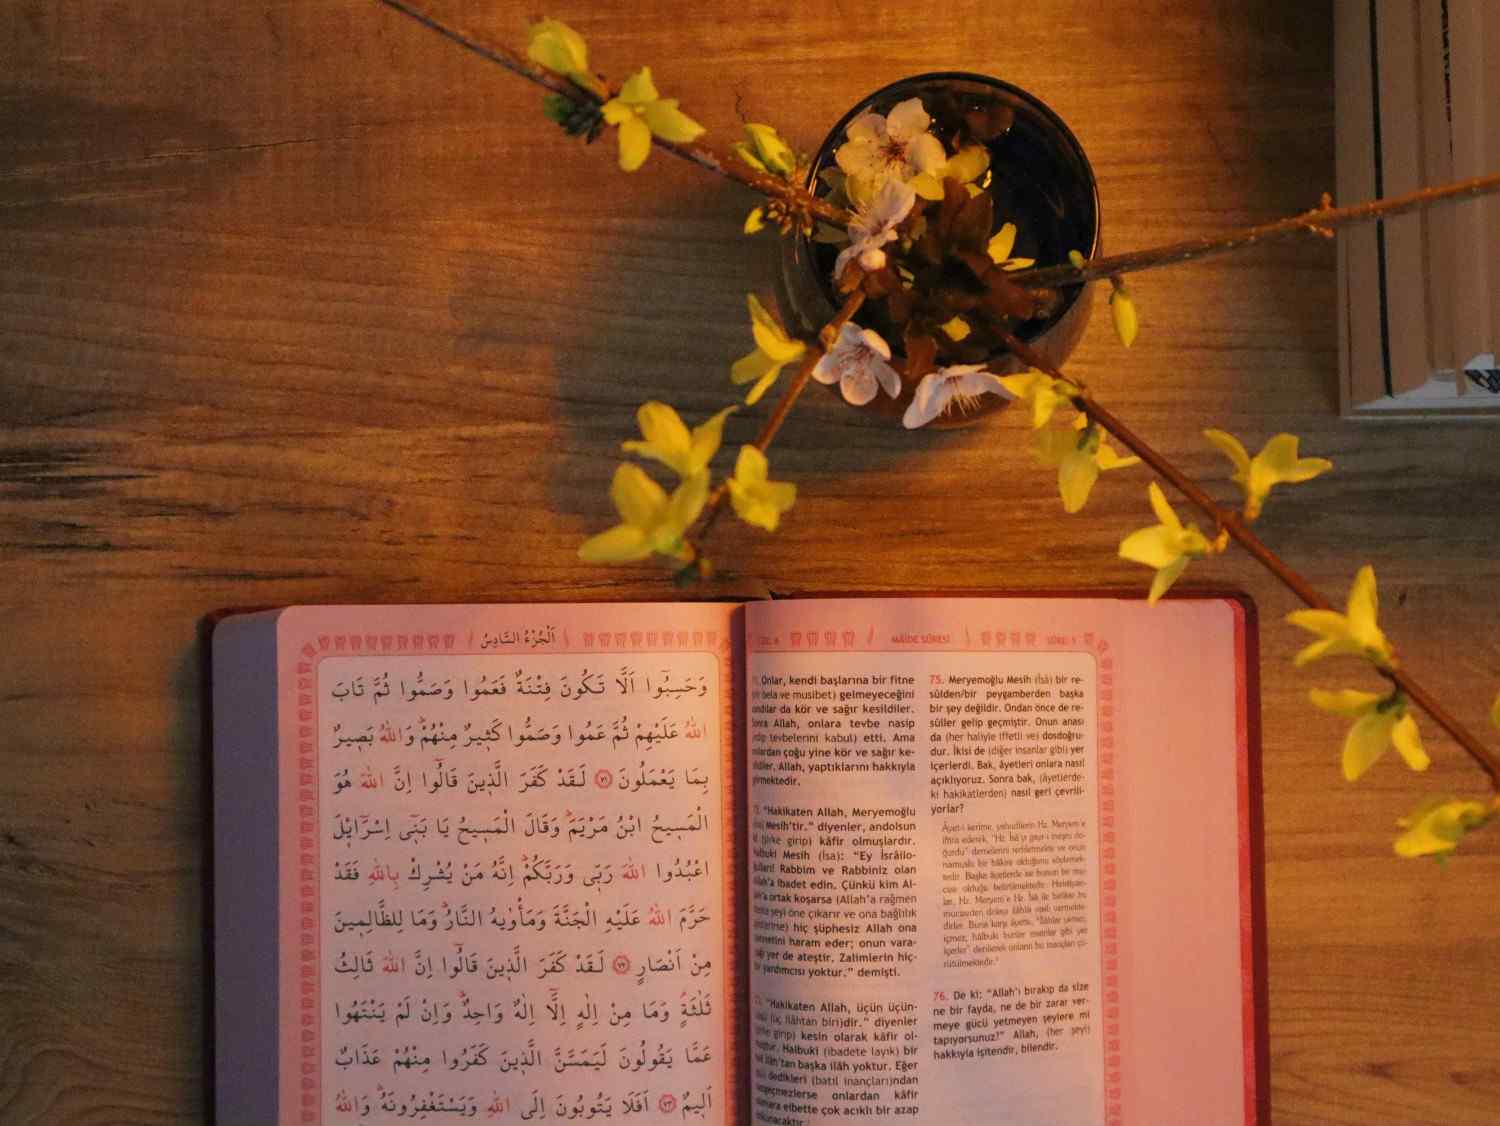 اَلْجُزْءُ السَّادِسُ
وَحَسِبُٓوا اَلَّا تَكُونَ فِتْنَةٌ فَعَمُوا وَصَمُّوا ثُمَّ تَابَ
اللّٰهُ عَلَيْهِمْ ثُمَّ عَمُوا وَصَمُّوا كَث۪يرٌ مِنْهُمْۜ وَاللّٰهُ بَص۪يرٌ
بِمَا يَعْمَلُونَ ﴿٧١﴾ لَقَدْ كَفَرَ الَّذ۪ينَ قَالُٓوا اِنَّ اللّٰهَ هُوَ
الْمَس۪يحُ ابْنُ مَرْيَمَۜ وَقَالَ الْمَس۪يحُ يَا بَن۪ٓي اِسْرَٓائ۪لَ
اعْبُدُوا اللّٰهَ رَبّ۪ي وَرَبَّكُمْۜ اِنَّهُ مَنْ يُشْرِكْ بِاللّٰهِ فَقَدْ
حَرَّمَ اللّٰهُ عَلَيْهِ الْجَنَّةَ وَمَأْوٰيهُ النَّارُۜ وَمَا لِلظَّالِم۪ينَ
مِنْ اَنْصَارٍ ﴿٧٢﴾ لَقَدْ كَفَرَ الَّذ۪ينَ قَالُٓوا اِنَّ اللّٰهَ ثَالِثُ
ثَلٰثَةٍۢ وَمَا مِنْ اِلٰهٍ اِلَّٓا اِلٰهٌ وَاحِدٌۜ وَاِنْ لَمْ يَنْتَهُوا
عَمَّا يَقُولُونَ لَيَمَسَّنَّ الَّذ۪ينَ كَفَرُوا مِنْهُمْ عَذَابٌ
اَل۪يمٌ ﴿٧٣﴾ اَفَلَا يَتُوبُونَ اِلَى اللّٰهِ وَيَسْتَغْفِرُونَهُۜ وَاللّٰهُ
MÂİDE SÛRESİ
SÛRE: 5
Onlar, kendi başlarına bir fitne
bela ve musibet) gelmeyeceğini
da kör ve sağır kesildiler.
Allah, onlara tevbe nasip
tevbelerini kabul) etti. Ama
çoğu yine kör ve sağır ke-
Allah, yaptıklarını hakkıyla
"Hakikaten Allah, Meryemoğlu
Mesih'tir." diyenler, andolsun
(şirke girip) kâfir olmuşlardır.
Mesih (İsa): "Ey İsrâilo-
Rabbim ve Rabbiniz olan
ibadet edin. Çünkü kim Al-
ortak koşarsa (Allah'a rağmen
şeyi öne çıkarır ve ona bağlılık
hiç şüphesiz Allah ona
haram eder; onun vara-
yer de ateştir. Zalimlerin hiç-
yardımcısı yoktur." demişti.
"Hakikaten Allah, üçün üçün-
(üç ilâhtan biri)dir." diyenler
girip) kesin olarak kâfir ol-
Halbuki (ibadete layık) bir
ilâh'tan başka ilâh yoktur. Eğer
dedikleri (batıl inançları)ndan
vazgeçmezlerse onlardan kâfir
elbette çok acıklı bir azap
75. Meryemoğlu Mesih (Îsâ) bir re-
sûlden/bir peygamberden başka
bir şey değildir. Ondan önce de re-
sûller gelip geçmiştir. Onun anası
da (her haliyle iffetli ve) dosdoğru-
dur. İkisi de (diğer insanlar gibi) yer
içerlerdi. Bak, âyetleri onlara nasıl
açıklıyoruz. Sonra bak, (âyetlerde-
ki hakikatlerden) nasıl geri çevrili-
yorlar?
Âyet-i kerime, yahudilerin Hz. Meryem'e
iftira ederek, "Hz. Îsâ'yı gayr-i meşru do-
ğurdu" demelerini reddetmekte ve onun
namuslu bir bâkire olduğunu söylemek-
tedir. Başka âyetlerde ise bunun bir mu-
cize olduğu belirtilmektedir. Hıristiyan-
lar, Hz. Meryem'e Hz. Îsâ ile birlikte bu
mucizeden dolayı ilâhlık vasfı vermekte-
dirler. Buna karşı âyette, "İlâhlar yemez,
içmez, hâlbuki bunlar insanlar gibi yer
içerler" denilerek onların bu inançları çü-
rütülmektedir.
76. De ki: "Allah'ı bırakıp da size
ne bir fayda, ne de bir zarar ver-
meye gücü yetmeyen şeylere mi
tapıyorsunuz?" Allah, (her şeyi)
hakkıyla işitendir, bilendir.